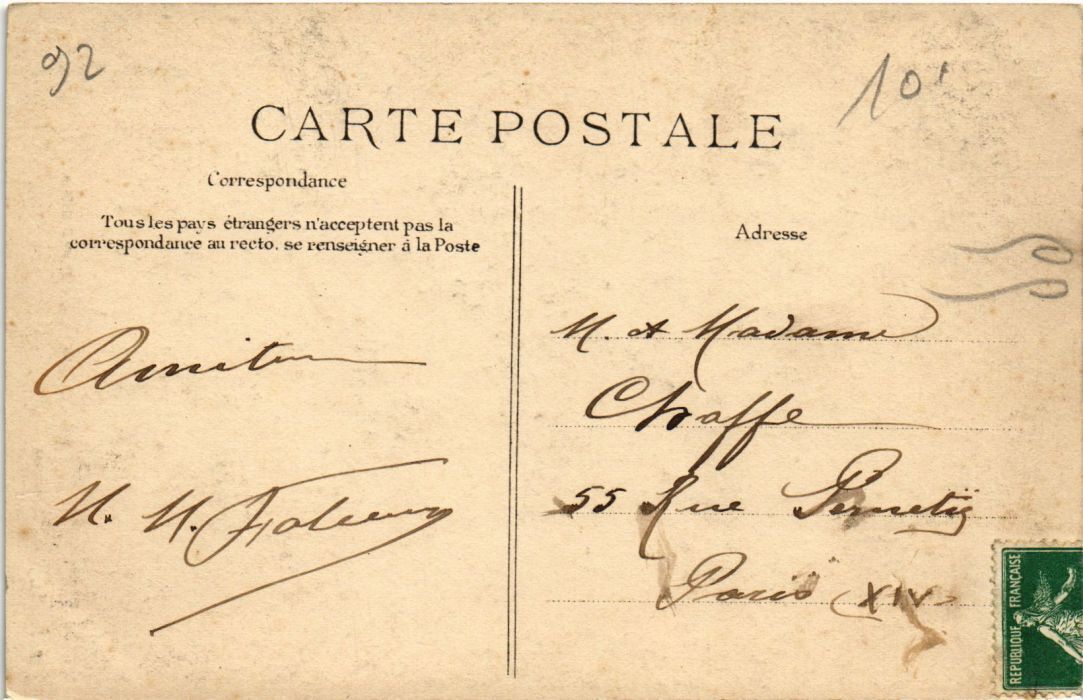 92
10
CARTE POSTALE
Correspondance
Tous les pays étrangers n'acceptent pas la
correspondance au recto, se renseigner à la Poste
Adresse
M. et Madame
Chaffe
55 Rue Pernety
Paris XIV
M. M.
REPUBLIQUE FRANÇAISE